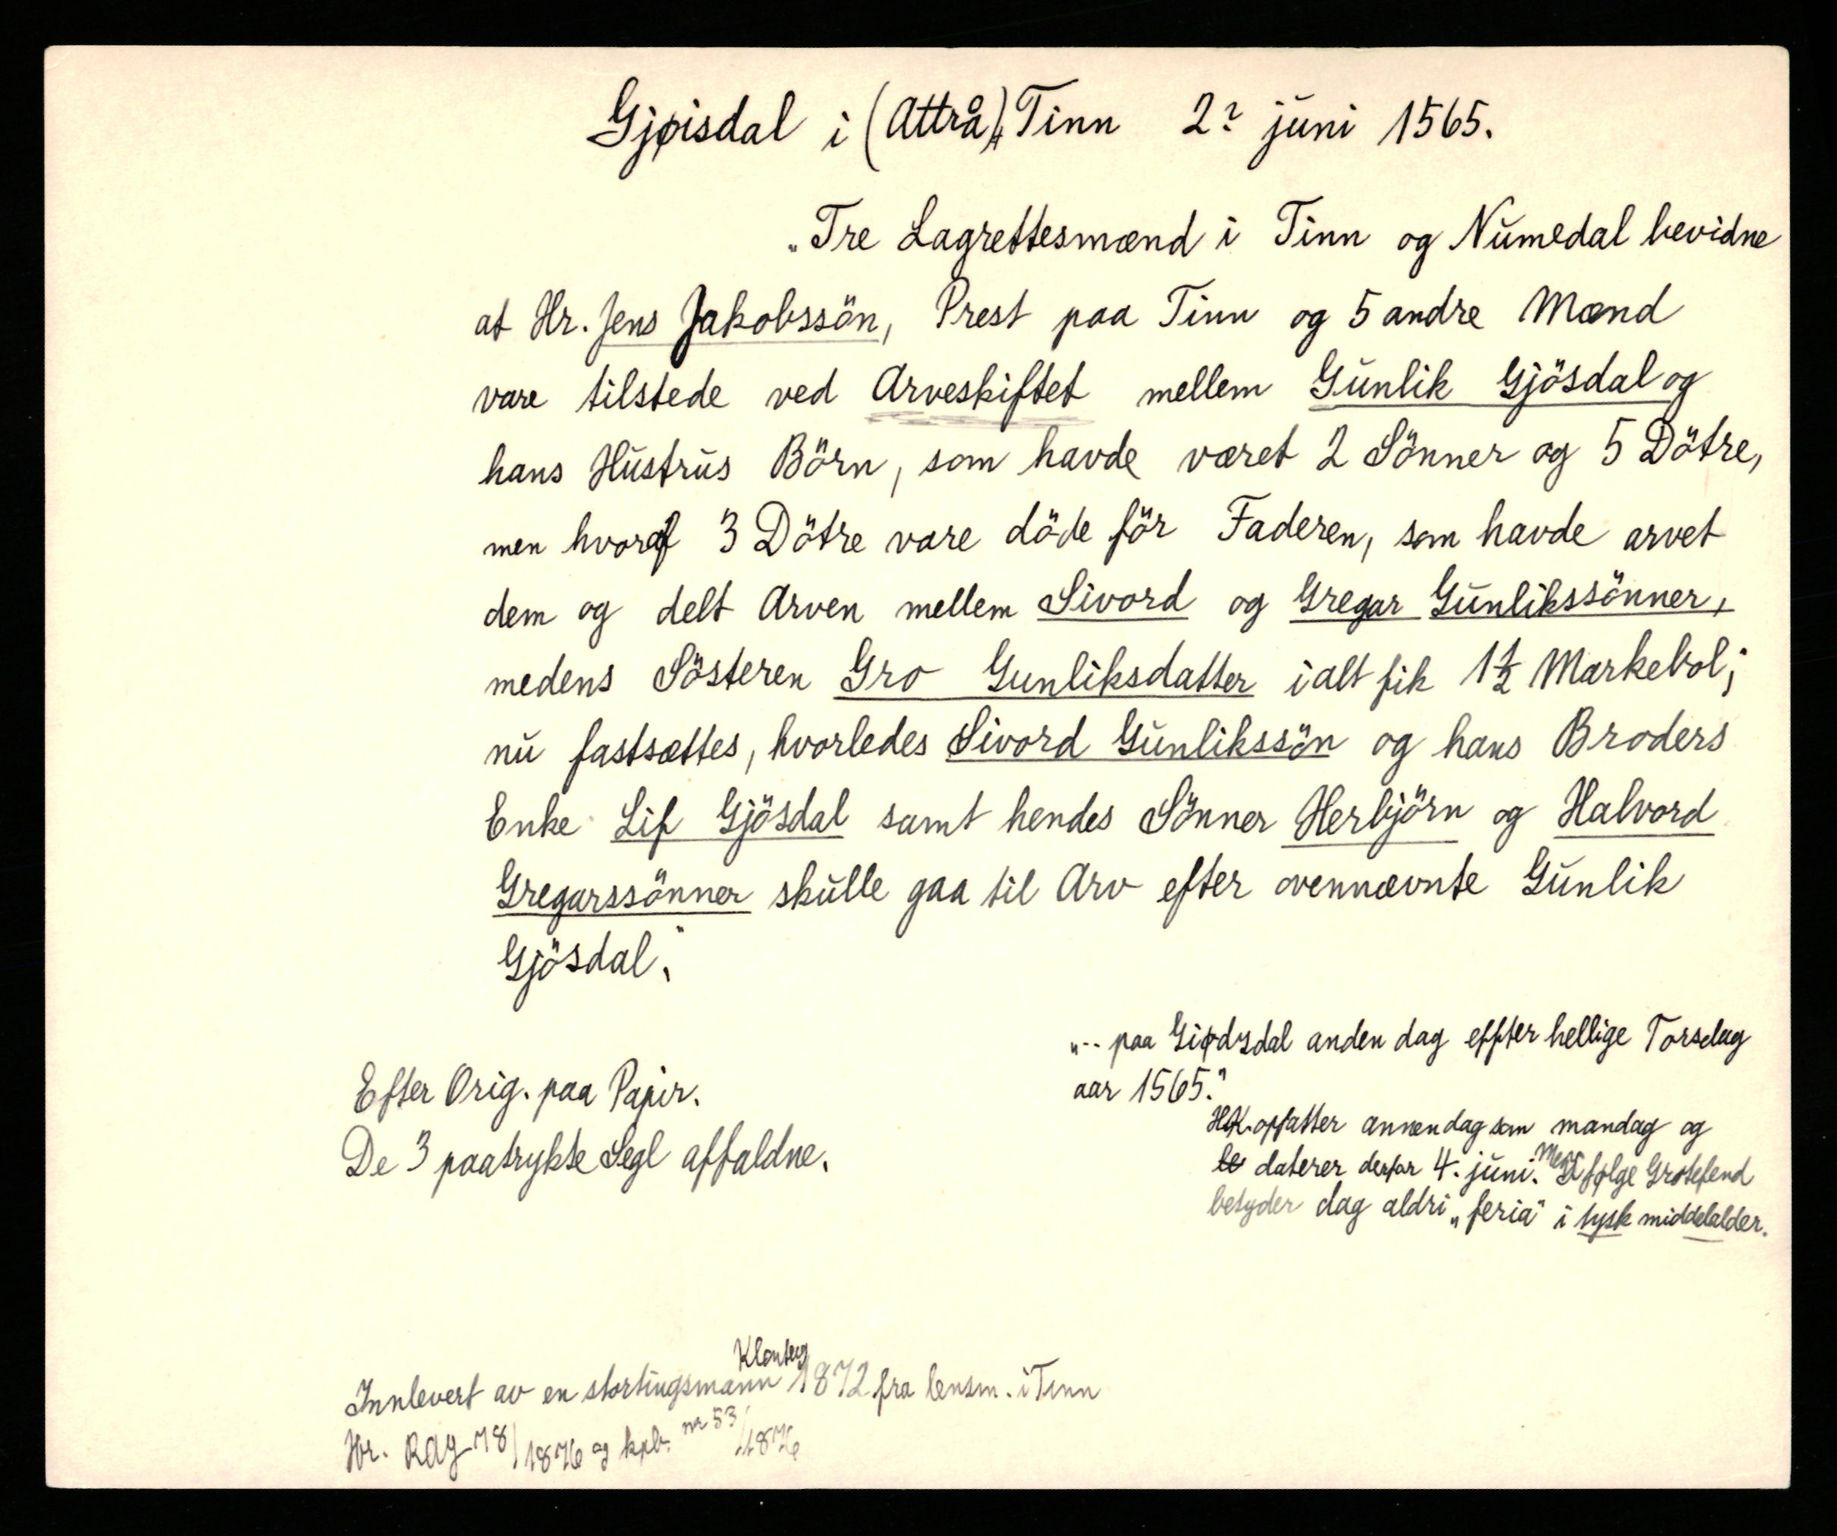 Gjøisdal i (Attrå), Tinn 2? juni 1565.
„Tre Lagrettesmænd i Tinn og Numedal bevidne
at Hr. Jens Jakobssön, Prest paa Tinn og 5 andre Mænd
vare tilstede ved Arveskiftet mellem Gunlik Gjösdal og
hans Hustrus Börn, som havde været 2 Sönner og 5 Dötre,
men hvoraf 3 Dötre vare döde för Faderen, som havde arvet
dem og delt Arven mellem Sivord og Gregar Gunlikssönner,
medens Sösteren Gro Gunliksdatter ialt fik 1½ Markebol;
nu fastsættes, hvorledes Sivord Gunlikssön og hans Broders
Enke Lif Gjösdal samt hendes Sönner Herbjörn og Halvord
Gregarssönner skulle gaa til Arv efter ovennævnte Gunlik
Gjösdal."
„-- paa Giødsdal anden dag effter hellige Torsdag
aar 1565."
Efter Orig. paa Papir.
De 3 paatrykte Segl affaldne.
HK. opfatter annen dag som mandag og
daterer derfor 4. juni. Men ifølge Grotefend
betyder dag aldri „feria" i tysk middelalder.
Innlevert av en stortingsmann Klonteig 1872 fra lensm. i Tinn
Hr. RAy 78/1876 og kpb. nr 53/1876